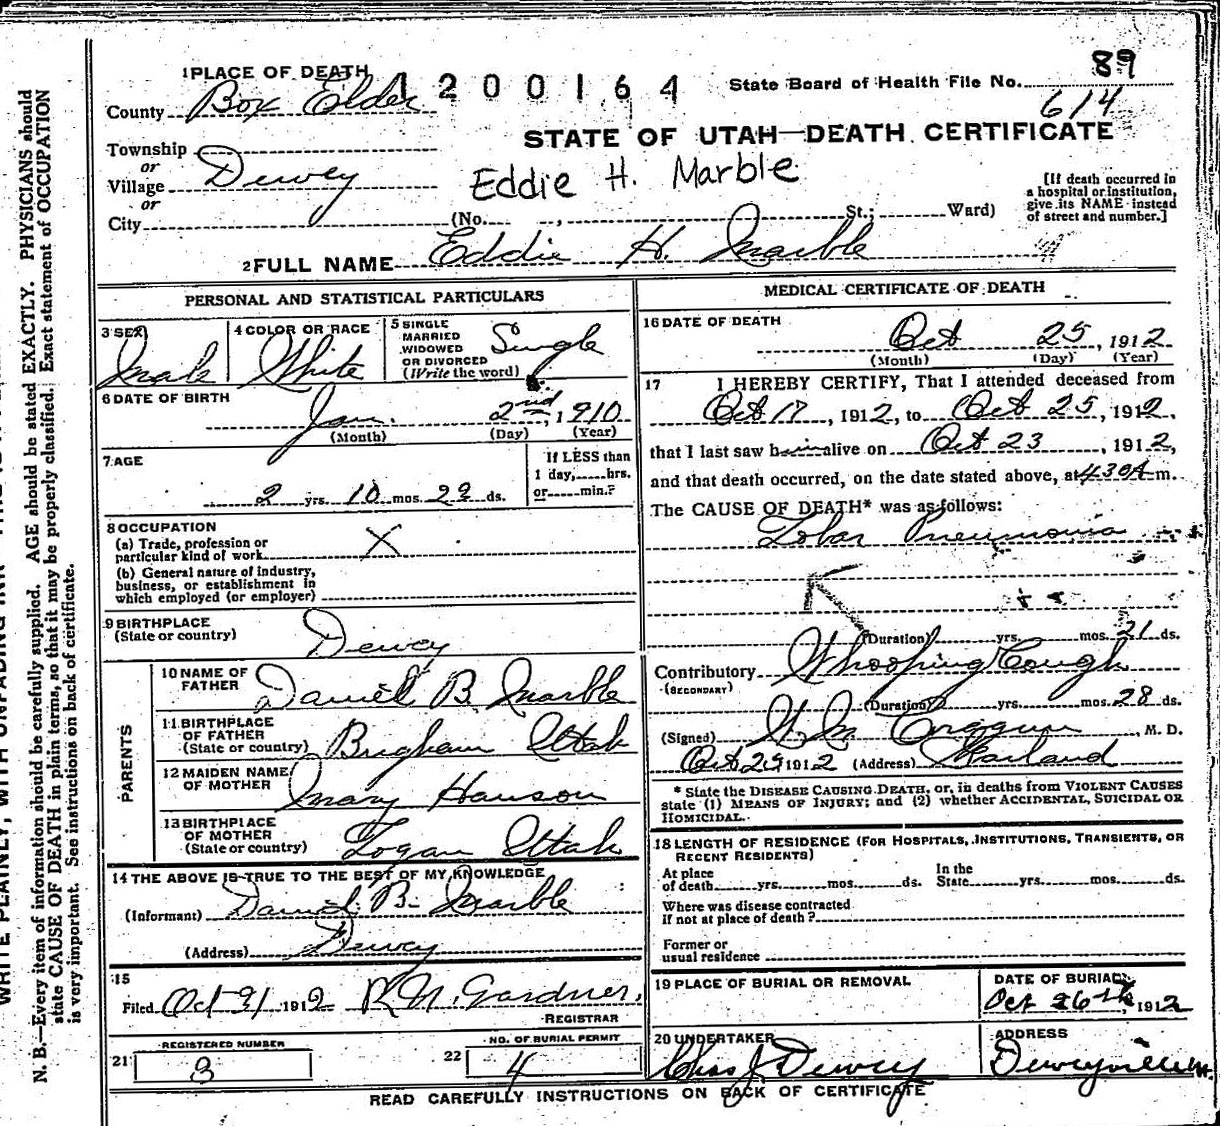 1 PLACE OF DEATH
1200164
State Board of Health File No. 89
614
County Box Elder
STATE OF UTAH—DEATH CERTIFICATE
Township
or
Village Dewey
Eddie H. Marble
or
City (No. , St.; Ward)
[If death occurred in
a hospital or institution,
give its NAME instead
of street and number.]
2 FULL NAME Eddie H. Marble
PERSONAL AND STATISTICAL PARTICULARS
3 SEX Male
4 COLOR OR RACE White
5 SINGLE
MARRIED
WIDOWED
OR DIVORCED
(Write the word) Single
6 DATE OF BIRTH
Jan. 2nd, 1910
(Month) (Day) (Year)
7 AGE
If LESS than
1 day, hrs.
or min.?
2 yrs. 10 mos. 22 ds.
8 OCCUPATION
(a) Trade, profession or
particular kind of work X
(b) General nature of industry,
business, or establishment in
which employed (or employer)
9 BIRTHPLACE
(State or country) Dewey
PARENTS
10 NAME OF
FATHER Daniel B. Marble
11 BIRTHPLACE
OF FATHER
(State or country) Brigham Utah
12 MAIDEN NAME
OF MOTHER Mary Hanson
13 BIRTHPLACE
OF MOTHER
(State or country) Logan Utah
14 THE ABOVE IS TRUE TO THE BEST OF MY KNOWLEDGE
(Informant) Daniel B. Marble
(Address) Dewey
15
Filed Oct 31 1912 R. N. Gardner.
REGISTRAR
REGISTERED NUMBER
21 3
NO. OF BURIAL PERMIT
22 4
MEDICAL CERTIFICATE OF DEATH
16 DATE OF DEATH
Oct 25, 1912
(Month) (Day) (Year)
17 I HEREBY CERTIFY, That I attended deceased from
Oct 17, 1912, to Oct 25, 1912,
that I last saw him alive on Oct 23, 1912,
and that death occurred, on the date stated above, at 430A m.
The CAUSE OF DEATH* was as follows:
Lobar Pneumonia
(Duration) yrs. mos. 21 ds.
Contributory Whooping Cough
(SECONDARY)
(Duration) yrs. mos. 28 ds.
(Signed) , M. D.
Oct 29 1912 (Address) Garland
* State the DISEASE CAUSING DEATH, or, in deaths from VIOLENT CAUSES
state (1) MEANS OF INJURY; and (2) whether ACCIDENTAL, SUICIDAL OR
HOMICIDAL.
18 LENGTH OF RESIDENCE (FOR HOSPITALS, INSTITUTIONS, TRANSIENTS, OR
RECENT RESIDENTS)
At place
of death yrs. mos. ds.
In the
State yrs. mos. ds.
Where was disease contracted
if not at place of death?
Former or
usual residence
19 PLACE OF BURIAL OR REMOVAL
DATE OF BURIAL
Oct 26th, 1912
20 UNDERTAKER
Chas J Dewey
ADDRESS
Deweyville
READ CAREFULLY INSTRUCTIONS ON BACK OF CERTIFICATE
N. B.—Every item of information should be carefully supplied. AGE should be stated EXACTLY. PHYSICIANS should
state CAUSE OF DEATH in plain terms, so that it may be properly classified. Exact statement of OCCUPATION
is very important. See instructions on back of certificate.